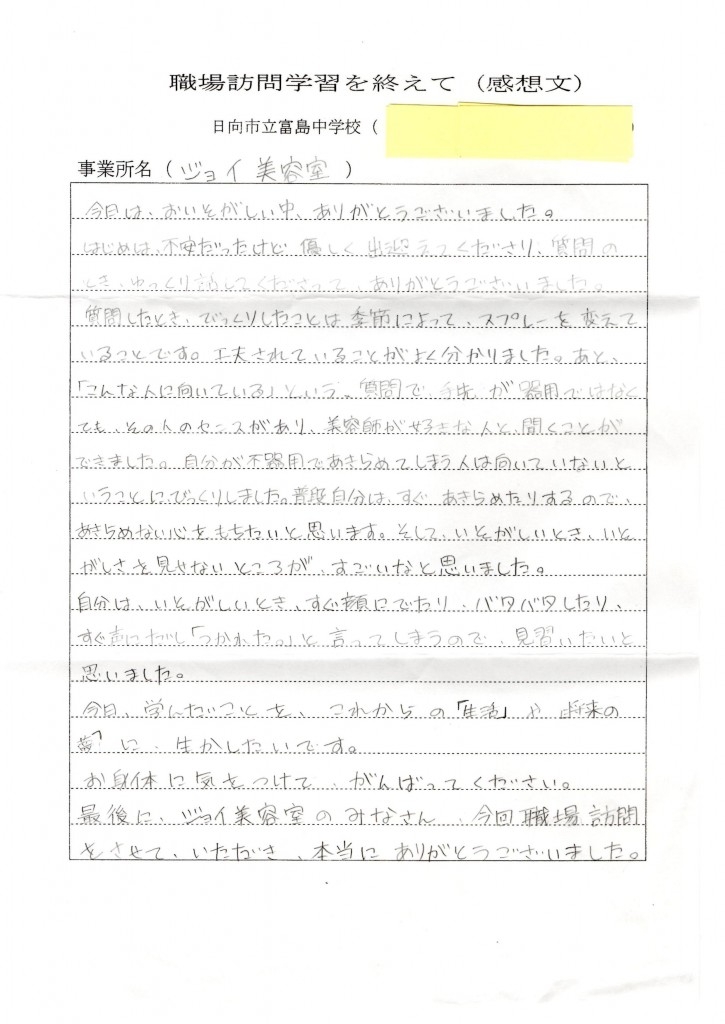 職場訪問学習を終えて（感想文）
日向市立富島中学校（ ）
事業所名（ジョイ美容室）
今日は、おいそがしい中、ありがとうございました。
はじめは、不安だったけど優しく出迎えてくださり、質問の
とき、ゆっくり話してくださって、ありがとうございました。
質問したとき、びっくりしたことは季節によって、スプレーを変えて
いることです。工夫されていることがよく分かりました。あと、
「こんな人に向いている」という、質問で、手先が器用ではなく
ても、その人のセンスがあり、美容師が好きな人と、聞くことが
できました。自分が不器用であきらめてしまう人は向いていないと
いうことにびっくりしました。普段自分は、すぐあきらめたりするので、
あきらめない心をもちたいと思います。そして、いそがしいとき、いそ
がしさを見せないところが、すごいなと思いました。
自分は、いそがしいとき、すぐ顔にでたり、バタバタしたり、
すぐ声にだし「つかれた。」と言ってしまうので、見習いたいと
思いました。
今日、学んだことを、これからの「生活」や「将来の
夢」に、生かしたいです。
お身体に気をつけて、がんばってください。
最後に、ジョイ美容室のみなさん、今回職場訪問
をさせて、いただき、本当にありがとうございました。